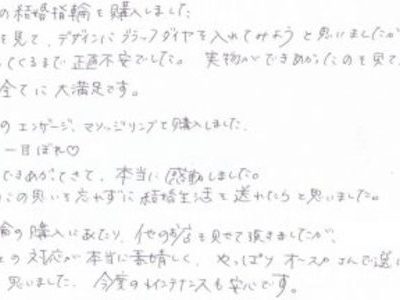 の結婚指輪を購入しました。
を見て、デザインにブラックダイヤを入れてみようと思いましたが
てくるまで正直不安でした。 実物ができあがったのを見て
全てに大満足です。
のエンゲージ、マリッジリングを購入しました。
一目ぼれ♡
できあがってきて、本当に感動しました。
この思いを忘れずに結婚生活を送れたらと思いました。
の購入にあたり、他のお店も見せて頂きましたが、
の対応が本当に素晴しく、やっぱり さんで
思いました。今後のメインテナンスも安心です。